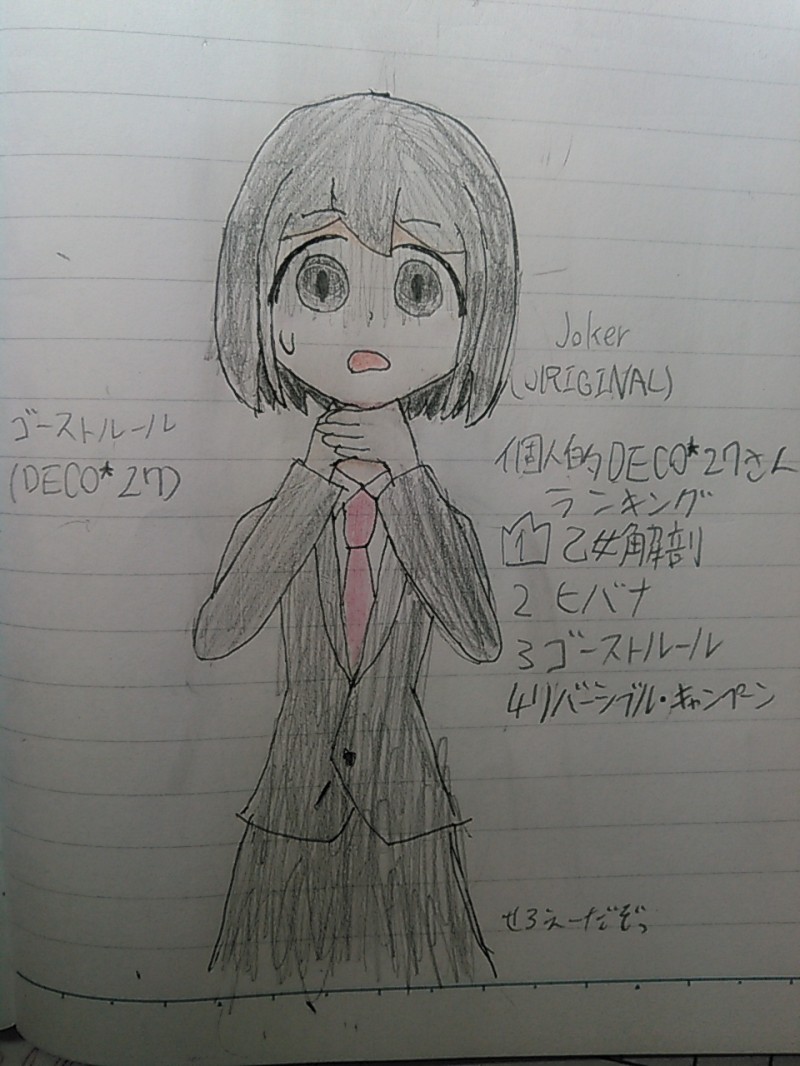 ゴーストルール
(DECO*27)
Joker
(URIGINAL)
個人的DECO*27さん
ランキング
1 乙女解剖
2 ヒバナ
3 ゴーストルール
4 リバーシブル・キャンペーン
せろえーだぞっ